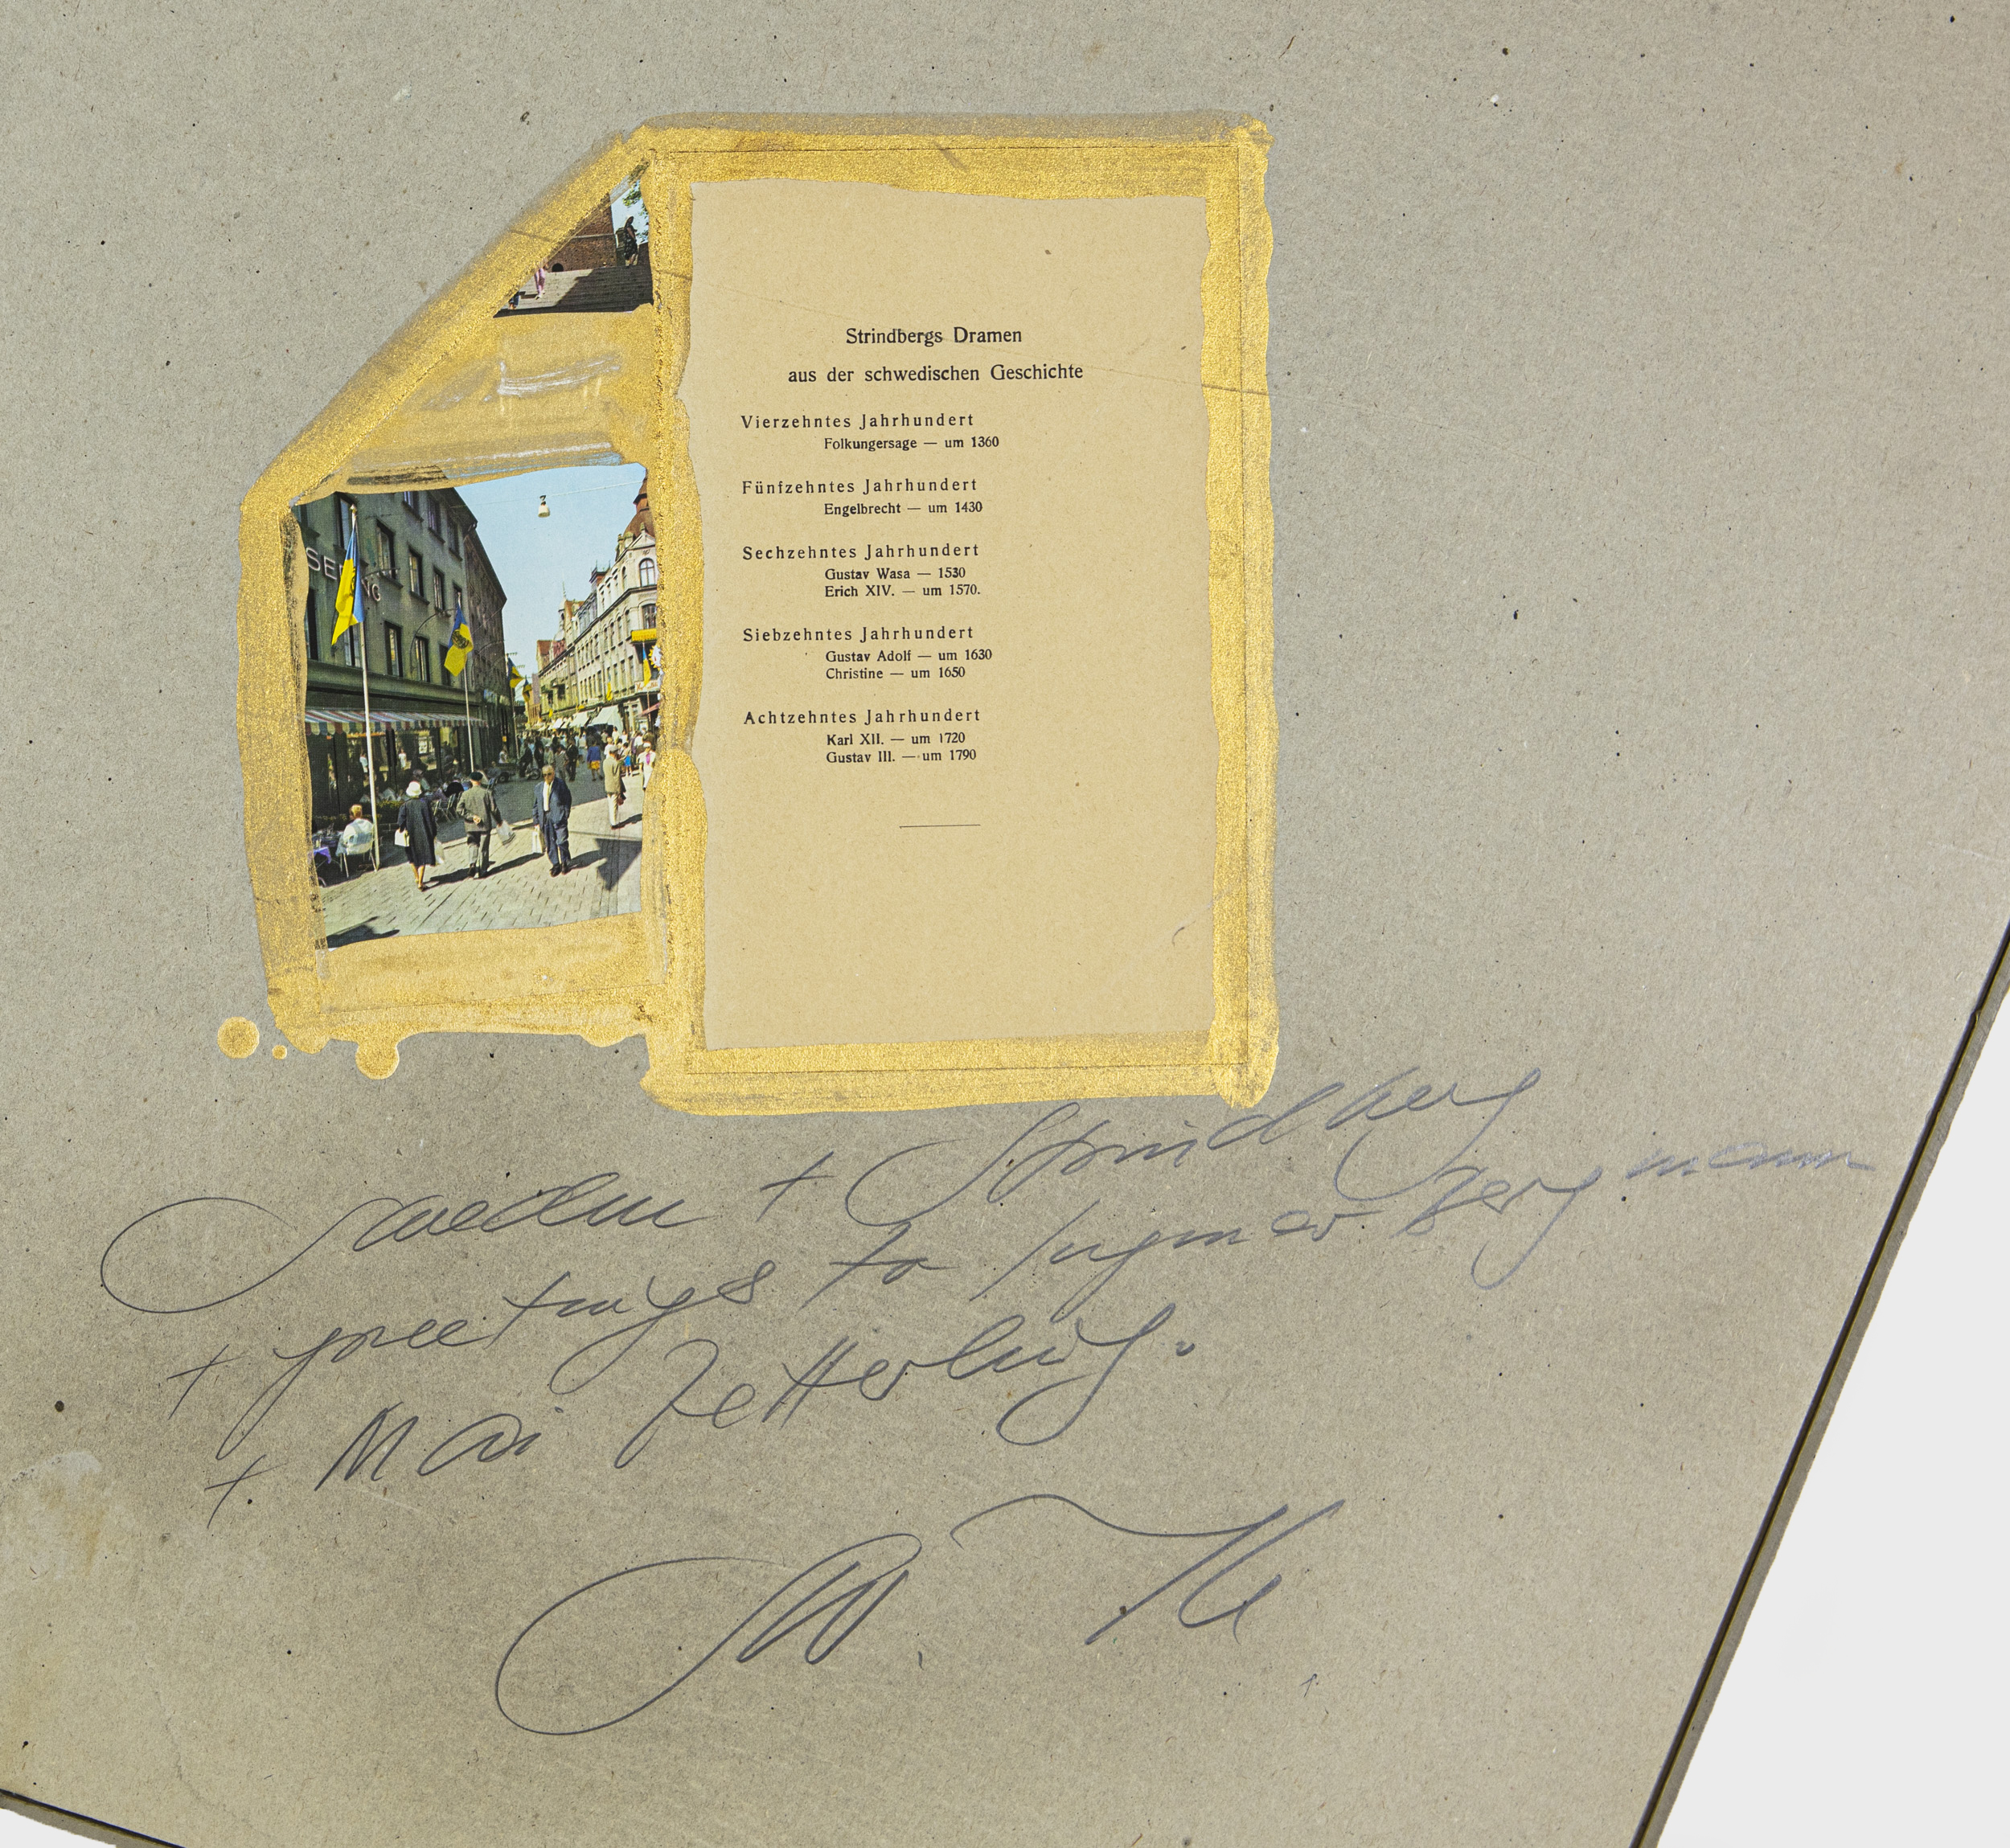 Strindbergs Dramen
aus der schwedischen Geschichte
Vierzehntes Jahrhundert
Folkungersage — um 1360
Fünfzehntes Jahrhundert
Engelbrecht — um 1430
Sechzehntes Jahrhundert
Gustav Wasa — 1530
Erich XIV. — um 1570.
Siebzehntes Jahrhundert
Gustav Adolf — um 1630
Christine — um 1650
Achtzehntes Jahrhundert
Karl XII. — um 1720
Gustav III. — um 1790
Sweden + Strindberg
+ greetings to Ingmar Bergmann
+ Mai Zetterling.